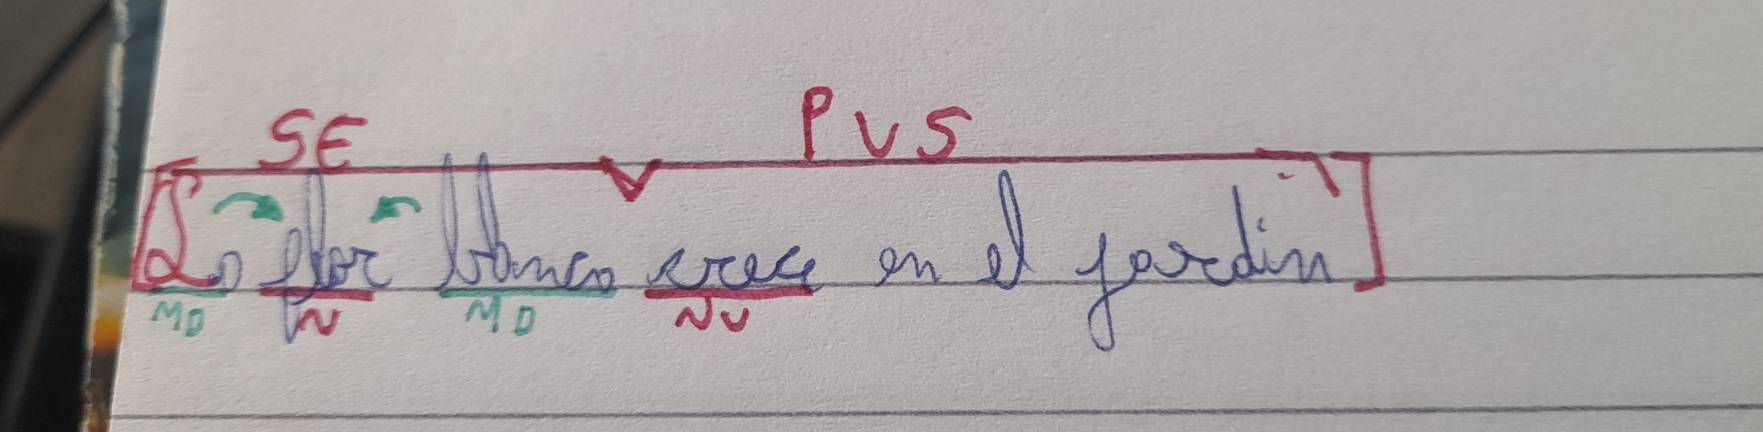 SE PVS
La flor blanca crece en el jardin
MD N MD NV